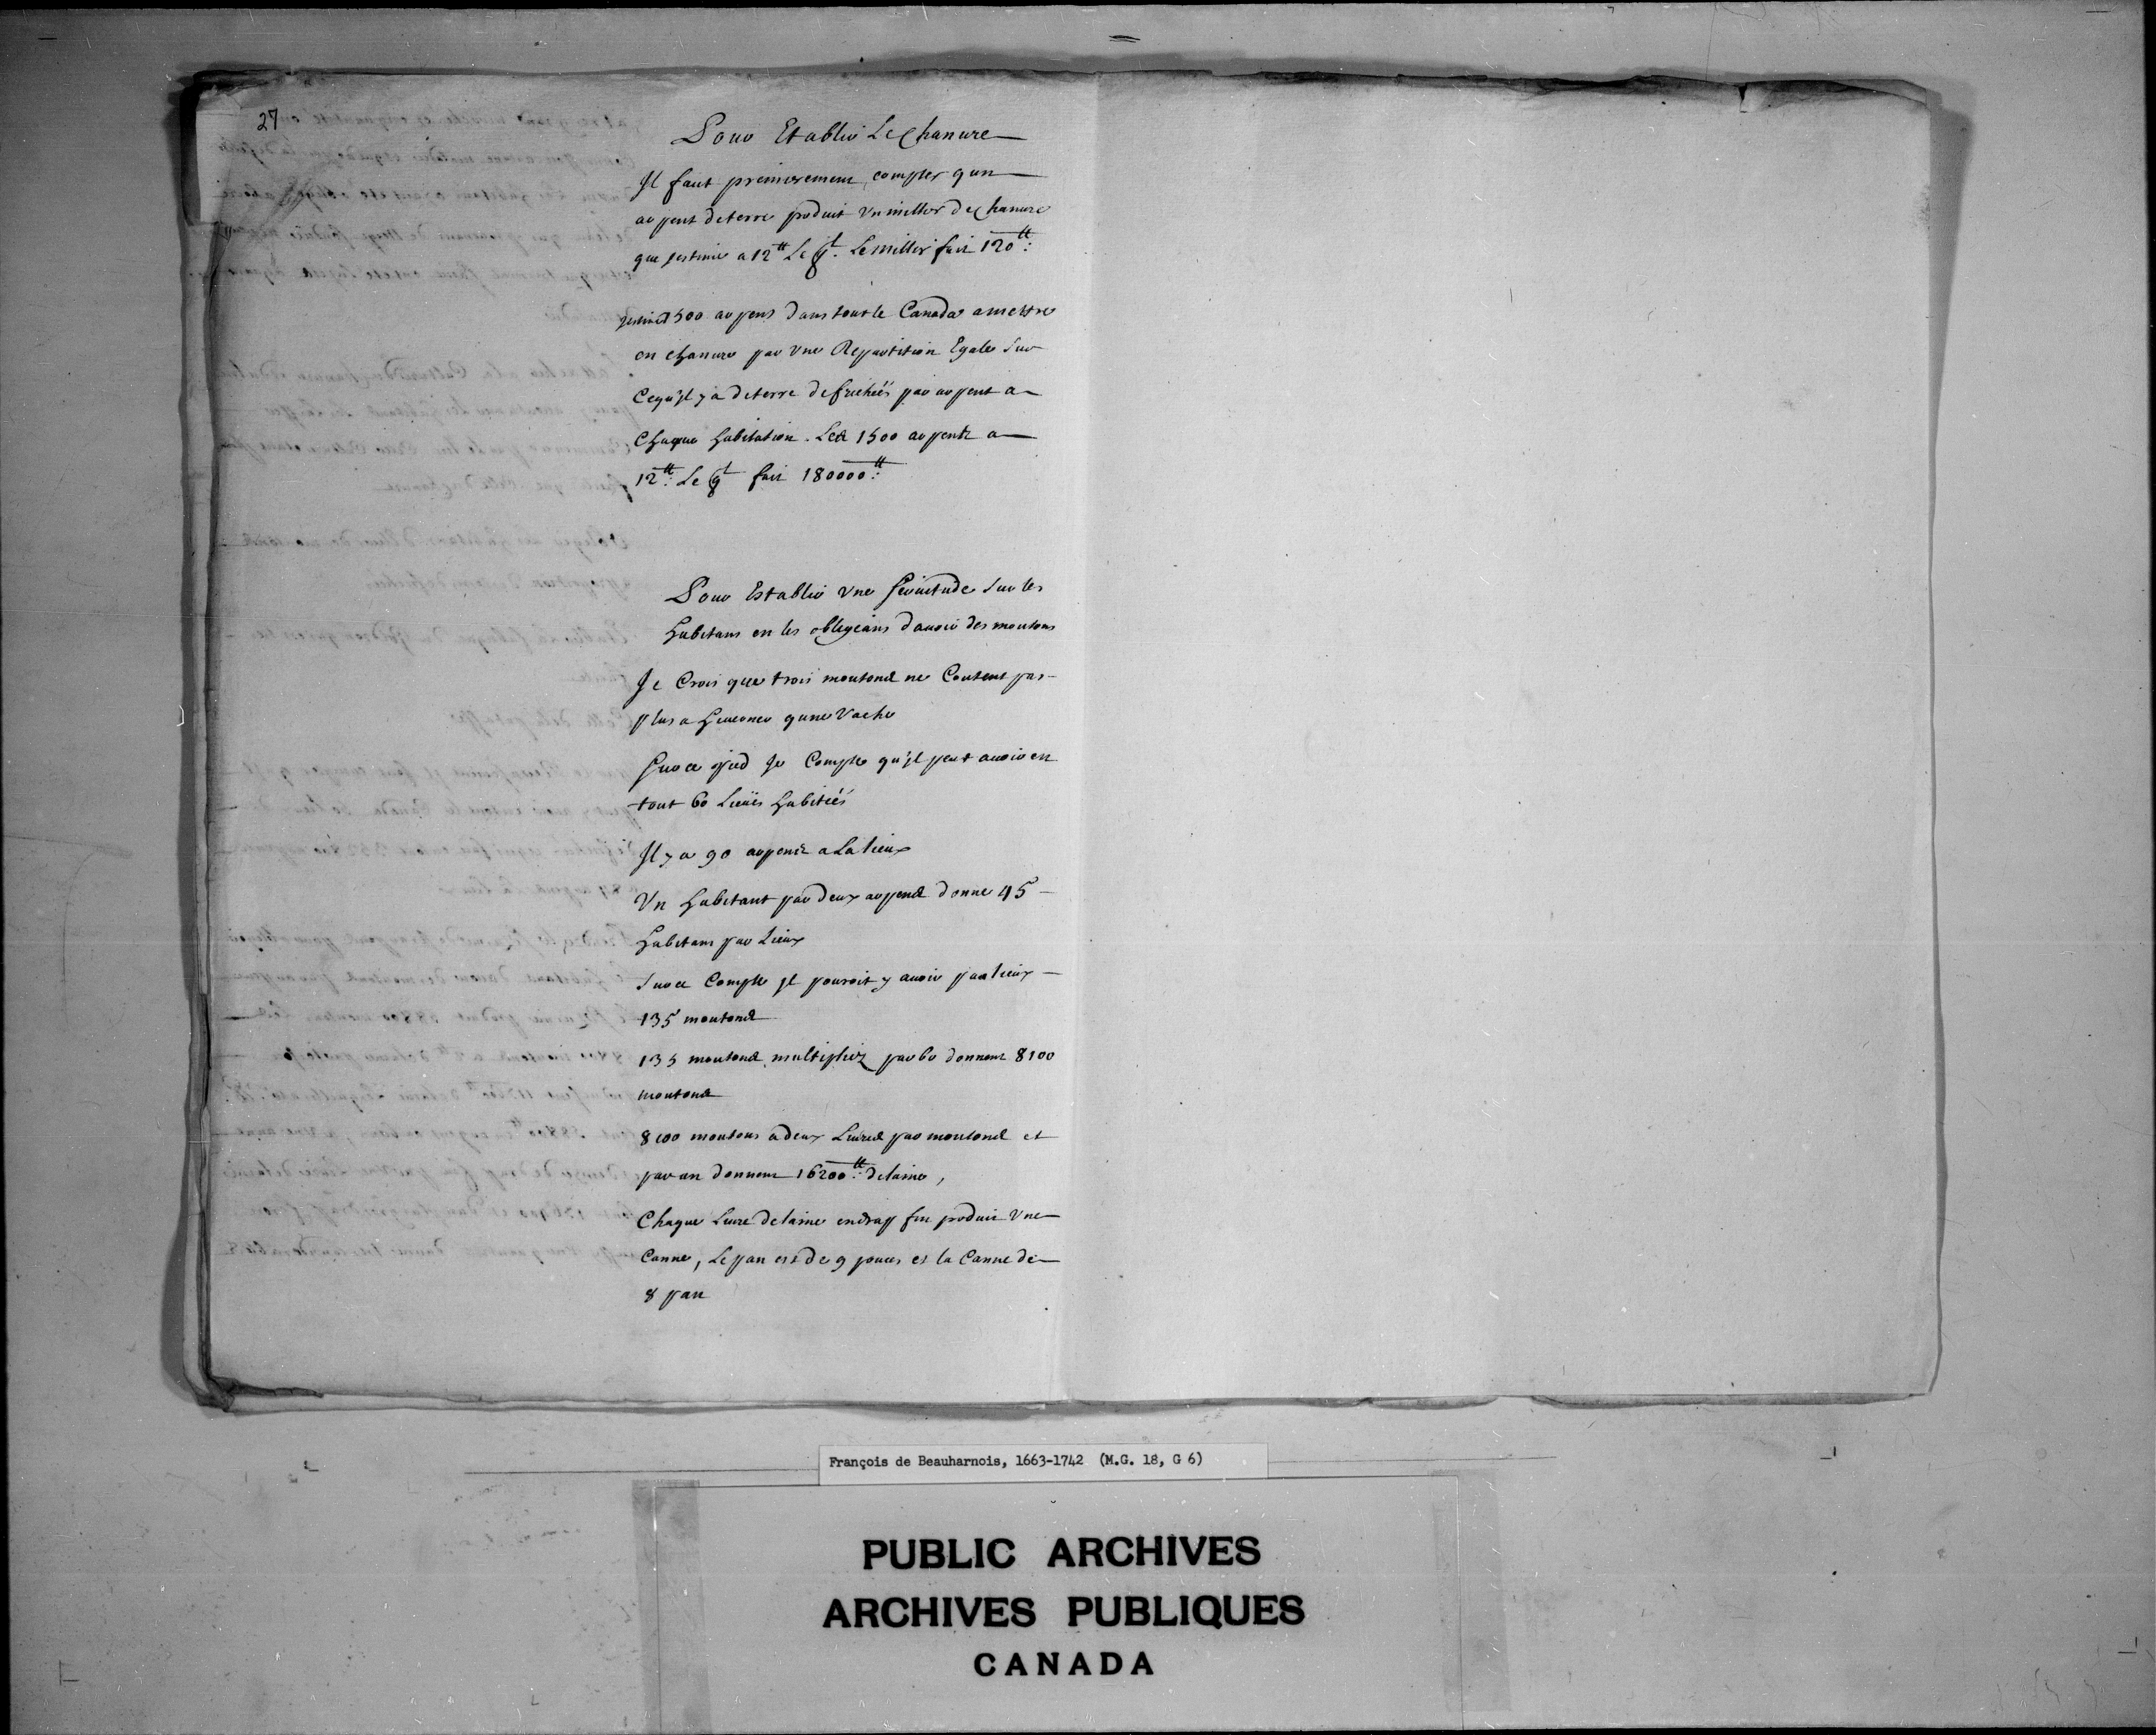 27
Pour Etablir Le Chanure
Il faut premierement compter q'un
arpent de terre produit un millier de Chanure
que j'estime a 12tt Le qt. Le millier fait 120tt:
j'estime 1500 arpens dans tout le Canada a mettre
en chanure par Une Repartition Egale Sur
Ce qu'il y a de terre defrichéés par arpent a
Chaque habitation. Les 1500 arpents a
12tt: Le qt fait 180000tt:
Pour Establir Une Seruitude Sur les
habitans en les obligeans d'auoir des moutons
Je Crois que trois moutons ne Coutent pas
plus a hiuerner qu'une Vache
Sur ce pied Je Compte qu'il peut auoir en
tout 60 Lieües habitéés
Il y a 90 arpents a La lieux
Un habitant par deux arpens donne 45
habitans par Lieux
Sur ce Compte Il pouroit y auoir par lieux
135 moutons
135 moutons multipliez par 60 donnent 8100
moutons
8100 moutons a deux Liures par moutons et
par an donnent 16200tt: de laine,
Chaque Liure de laine en drap fin produit Une
Canne, Le pan est de 9 pouces et la Canne de
8 pan
François de Beauharnois, 1663-1742 (M.G. 18, G 6)
PUBLIC ARCHIVES
ARCHIVES PUBLIQUES
CANADA